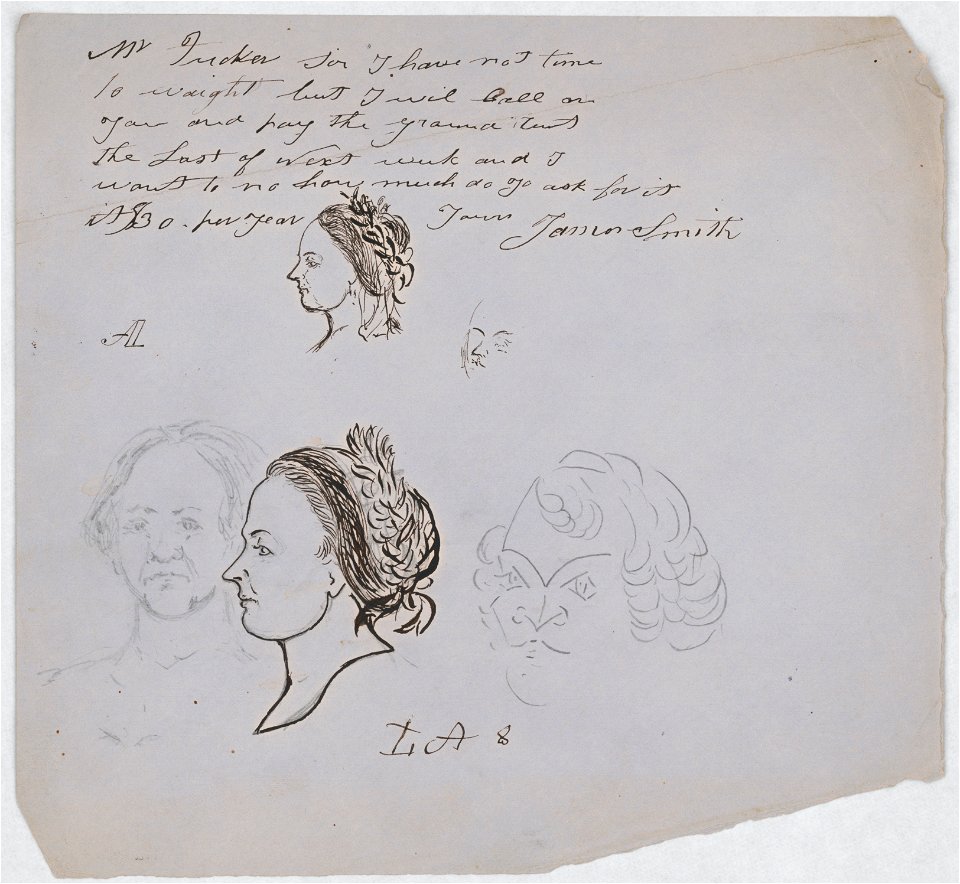 Mr Tucker Sir I have not time
to waight but I wil Call on
you and pay the ground Rent
the Last of Next week and I
want to no how much do yo ask for it
it $30. per year Yours James Smith
AL
LA 8